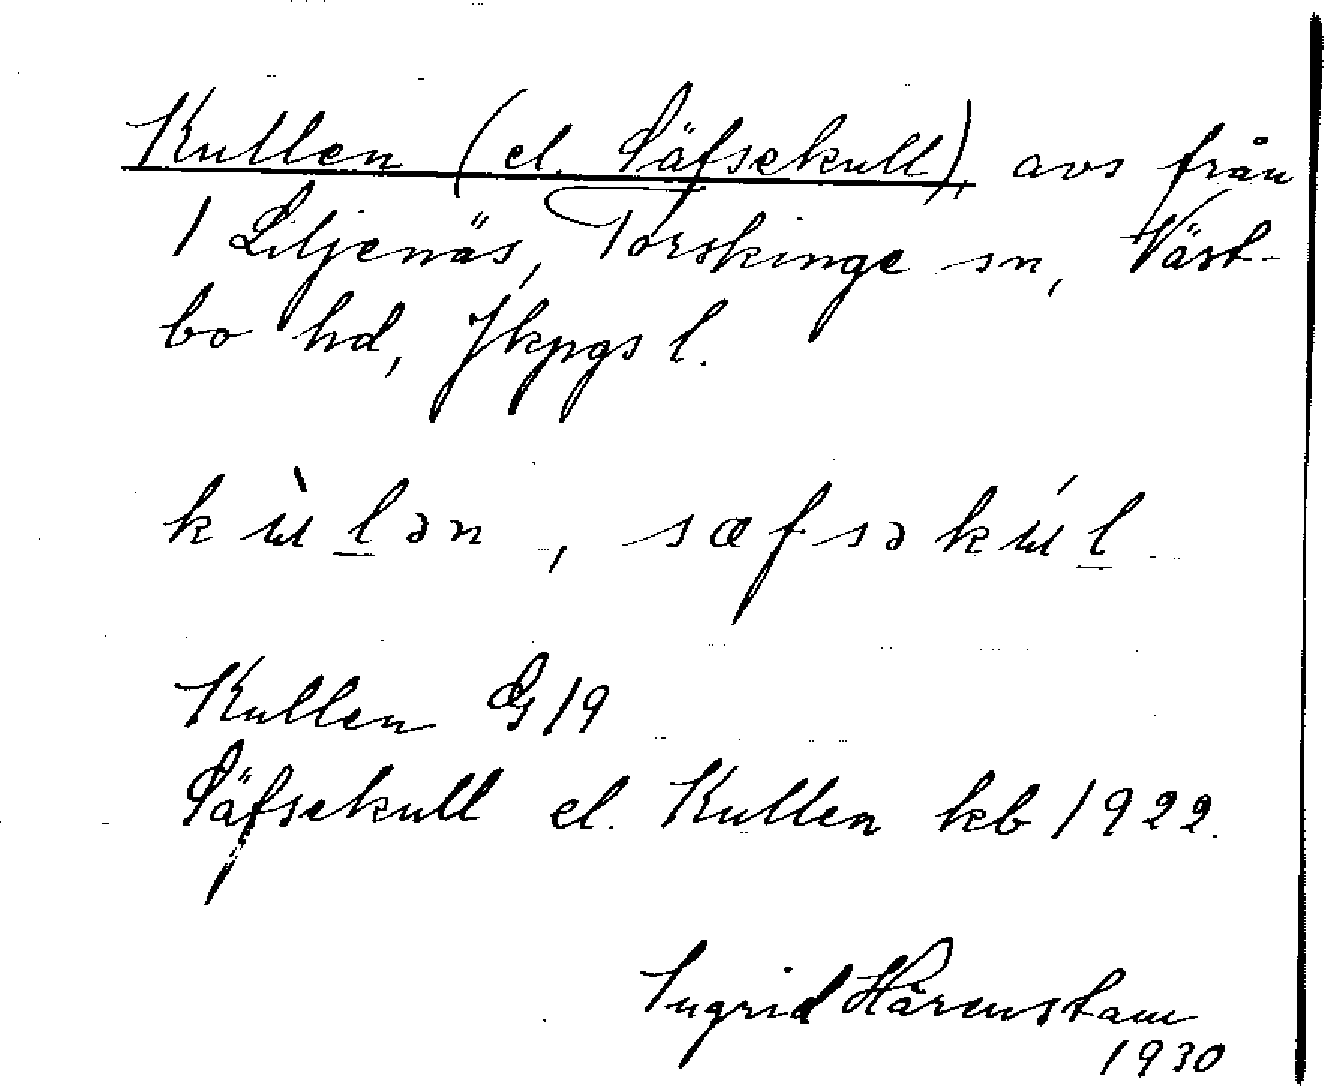 Kullen (el. Säfsekull), avs från
1 Liljenäs, Torskinge sn, Väst-
bo hd, Jkpgs l.
kùl̲ən, sæfsəkúl̲
Kullen G 19
Säfsekull el. Kullen kb 1922.
Ingrid Härenstam
1930